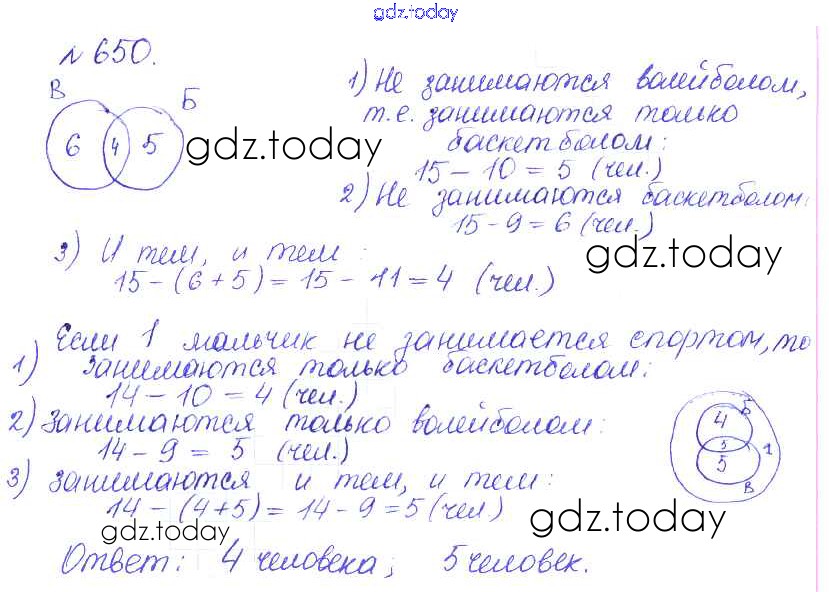 gdz.today
№ 650.
В
Б
6 4 5
gdz.today
1) Не занимаются волейболом,
т.е. занимаются только
баскетболом:
15 - 10 = 5 (чел.)
2) Не занимаются баскетболом:
15 - 9 = 6 (чел.)
gdz.today
3) И тем, и тем:
15 - (6 + 5) = 15 - 11 = 4 (чел.)
Если 1 мальчик не занимается спортом, то
1) занимаются только баскетболом:
14 - 10 = 4 (чел.)
2) занимаются только волейболом:
14 - 9 = 5 (чел.)
3) занимаются и тем, и тем:
14 - (4+5) = 14 - 9 = 5 (чел)
Б
4
5
1
5
В
gdz.today
gdz.today
Ответ: 4 человека; 5 человек.